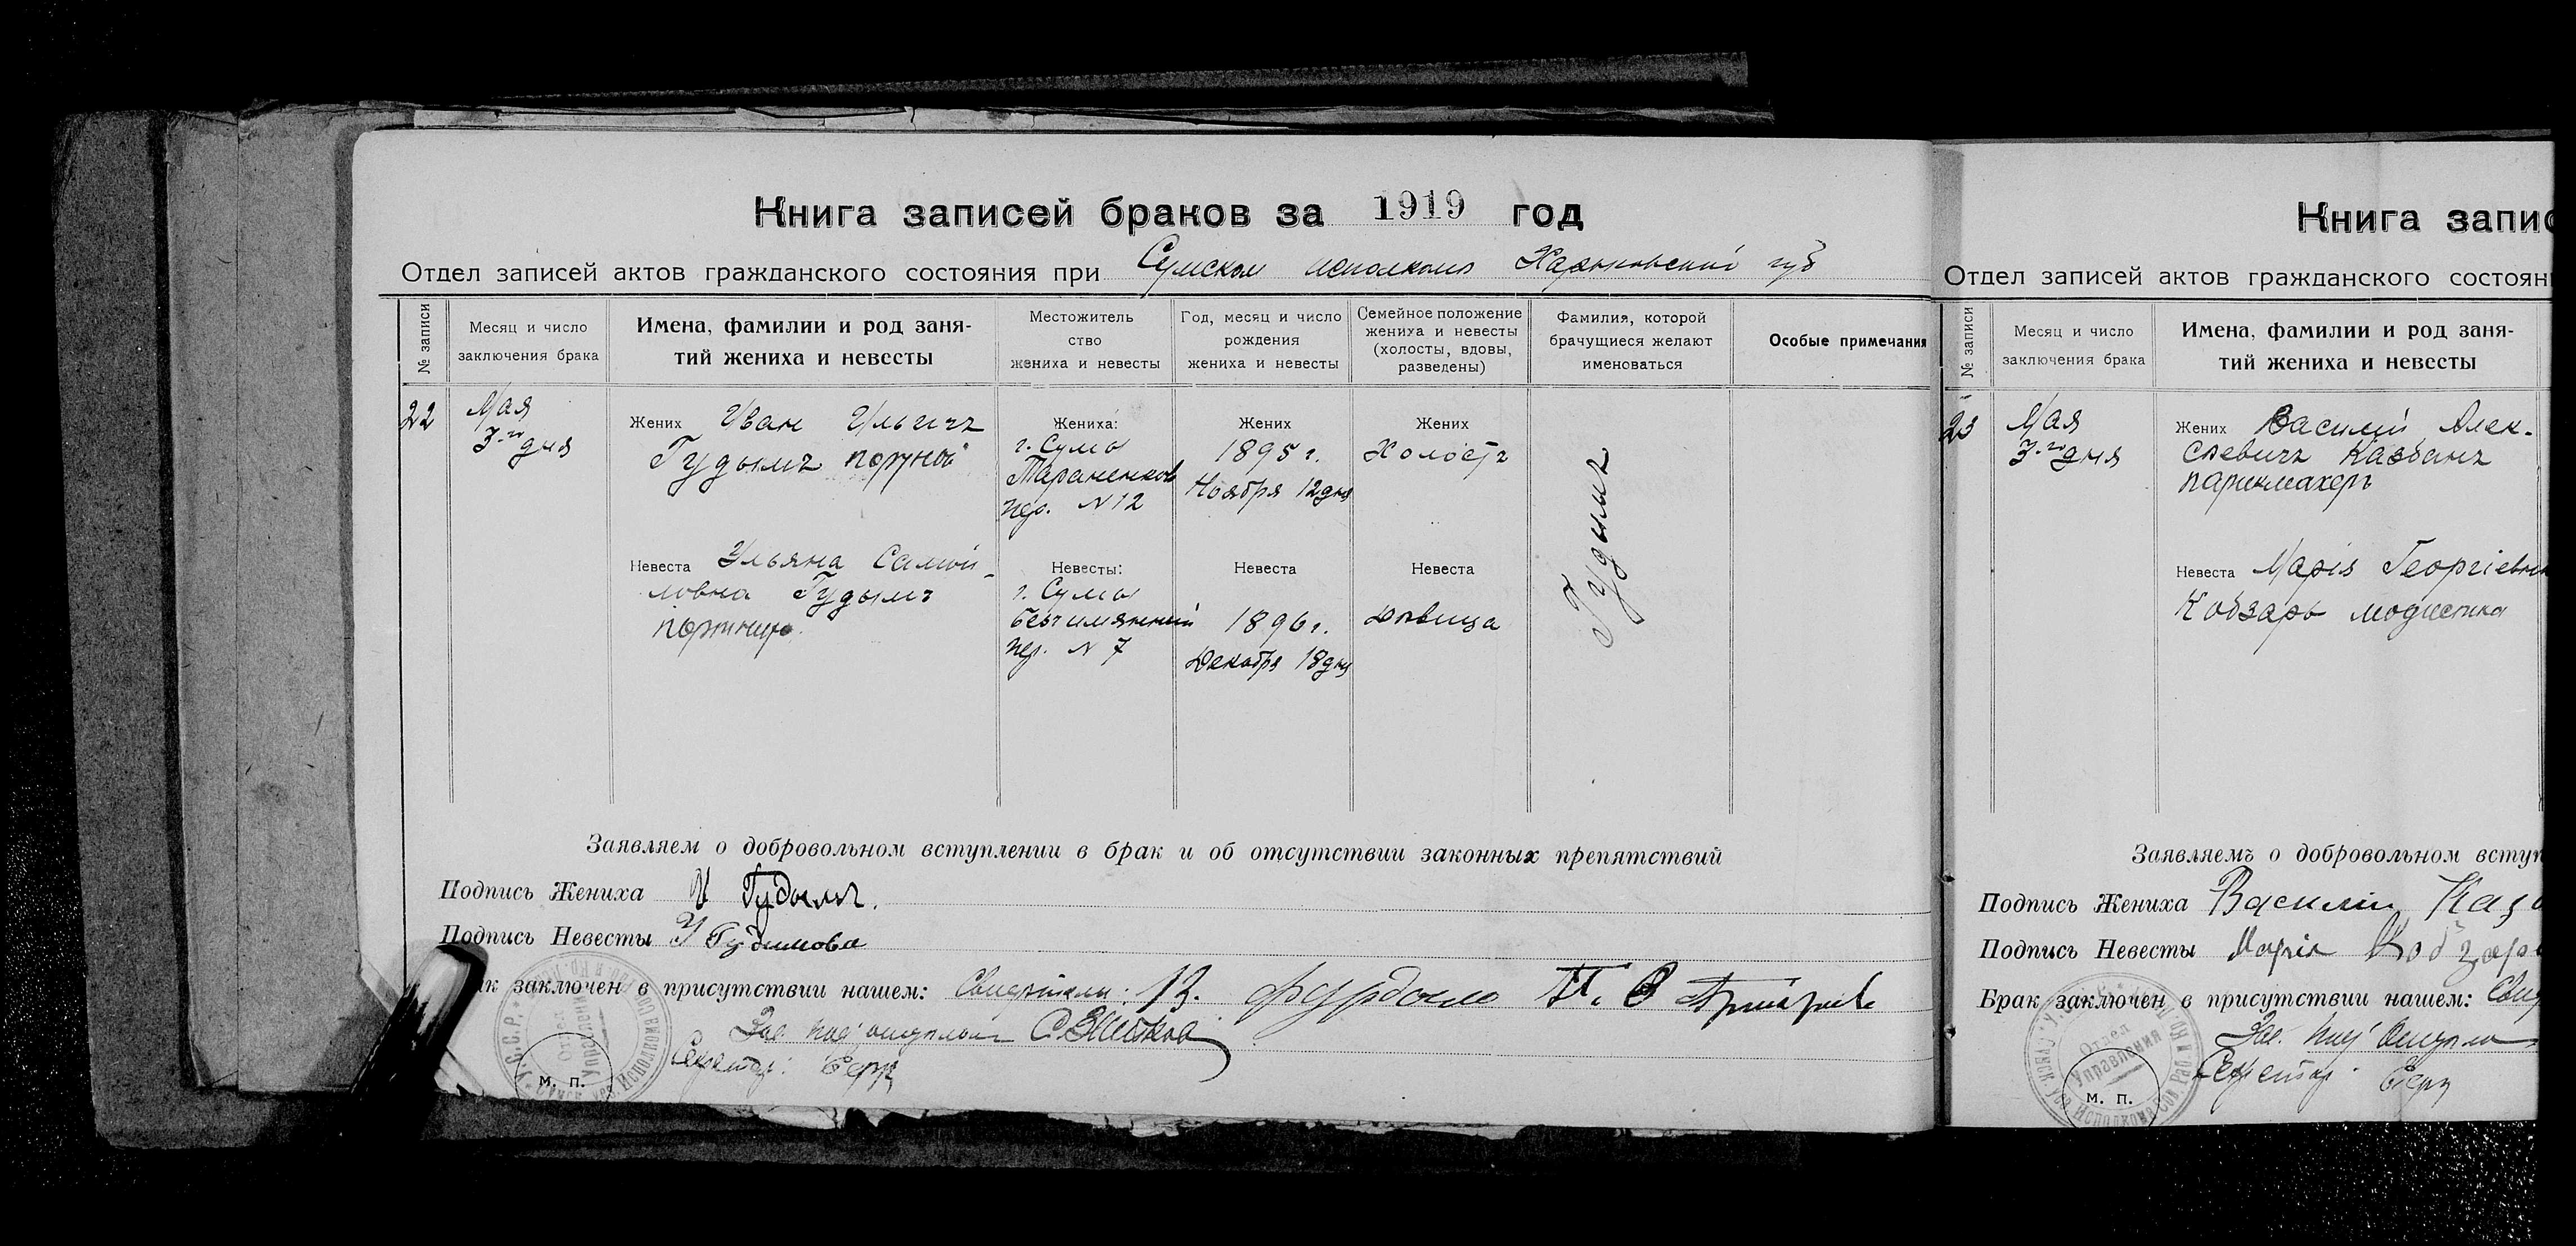 Книга записей браков за 1919 год
Отдел записей актов гражданского состояния при Сумском исполкоме Харьковской губ
№ записи
Месяц и число
заключения брака
Имена, фамилии и род заня-
тий жениха и невесты
Местожитель
ство
жениха и невесты
Год, месяц и число
рождения
жениха и невесты
Семейное положение
жениха и невесты
(холосты, вдовы,
разведены)
Фамилия, которой
брачущиеся желают
именоваться
Особые примечания
22
Мая
3-го дня
Жених Иван Ильичъ
Гудымъ портной
Жениха:
г. Сумы
Тараненков
пер. N 12
Жених
1895 г.
Ноября 12 дня
Жених
Холостъ
Гудымъ
Невеста Ульяна Самой-
ловна Гудымъ
портниха
Невесты:
г. Сумы
Безимянный
пер. N 7
Невеста
1896 г.
Декабря 18 дня
Невеста
Дѣвица
Заявляем о добровольном вступлении в брак и об отсутствии законных препятствий
Подпись Жениха И Гудымъ.
Подпись Невесты У Гудимова
ак заключен в присутствии нашем: Свидетели: В.
Зав.
Секретар:
м. п.
Книга запис
Отдел записей актов гражданского состоян
№ записи
Месяц и число
заключения брака
Имена, фамилии и род заня-
тий жениха и невесты
23
Мая
3-го дня
Жених Василий Алек-
сѣевичъ Казбанъ
парикмахеръ
Невеста Марія Георгіевна
Кобзарь модистка
Заявляемъ о добровольном вступ
Подпись Жениха Василий Каз
Подпись Невесты Марія Кобзарь
Брак заключен в присутствии нашем: Свид
Зав.
Секретар
Отдел
Управления
м. п.